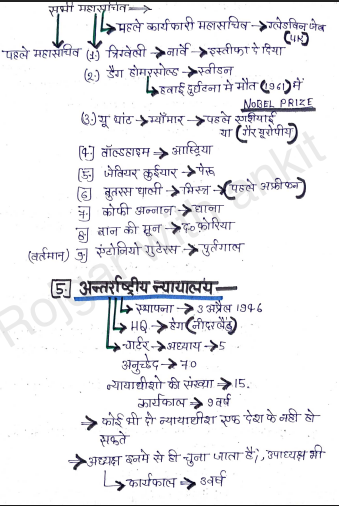 सभी महासचिव →
पहले कार्यकारी महासचिव → ग्लेडविन जेब
पहले महासचिव (1.) त्रिग्वेली → नार्वे → इस्तीफा दे दिया
(2.) डैग होमरसोल्ड → स्वीडन
हवाई दुर्घटना मे मौत (1961) में
NOBEL PRIZE
(3.) यू थांट → म्याँमार → पहले एशियाई
या (गैर यूरोपीय)
4. वॉल्डहाइम → आस्ट्रिया
5. जेवियर कुईयार → पेरू
6 बुतरस घाली → मिस्त्र → (पहले अफ्रीकन)
7. कोफी अन्नान → घाना
8 बान की मून → द० कोरिया
(वर्तमान) 9. एंटोनियो गुटेरस → पुर्तगाल
5. अन्तर्राष्ट्रीय न्यायालय —
स्थापना → 3 अप्रैल 1946
HQ → हेग (नीदरलैंड)
चार्टर → अध्याय → 5
अनुच्छेद → 70
न्यायाधीशो की संख्या → 15.
कार्यकाल → 9 वर्ष
⇒ कोई भी दो न्यायाधीश एक देश के नही हो
सकते
⇒ अध्यक्ष इनमे से ही चुना जाता है;, उपाध्यक्ष भी
कार्यकाल → 3 वर्ष
Rojgar with ankit